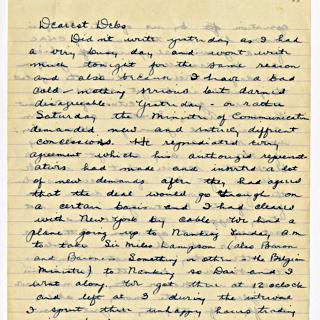 Dearest Debs
Did not write yesterday as I had
a very busy day and wont write
much tonight for the same reason
and also because I have a bad
cold - nothing serious but darned
disagreeable Yesterday - or rather
Saturday the Ministry of Communication
demanded new and entirely different
concessions. He repudiated every
agreement which his authorized represent-
atives had made and inserted a lot
of new demands after they had agreed
that the deal would go through on
a certain basis and I had cleared
with New York by cable. We had a
plane going up to Nanking Sunday A.M.
to take Sir Miles Lampson (also Baron
and Baroness Something or other - the Belgian
Minister) to Nanking so Dai and I
went along. We got there at 12 oclock
and left at 1 during the interval
I spent three unhappy hours trading